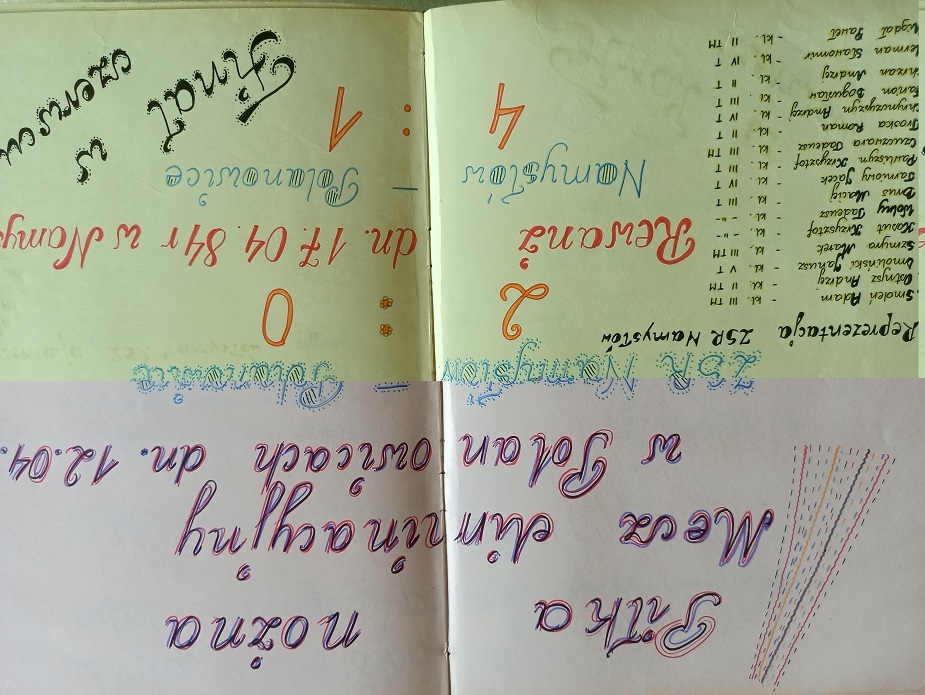 Piłka nożna
Mecz eliminacyjny
w Polanowicach dn. 12.04.
ZSR Namysłów – Polanowice
2 : 0
Rewanż dn. 17.04.84 r w Namys
Namysłów – Polanowice
4 : 1
Finał w
czerwcu
Reprezentacja ZSR Namysłów
Smoleń Adam - kl. III TM
Andrzej - kl. II TM
Janusz - kl. V T
Szmyra Marek - kl. III TM
Krzysztof - kl. -"-
Wolny Tadeusz - kl. -"-
Druś Maciej - kl. III T
Tarnowy Jacek - kl. IV T
Pawluszyn Krzysztof - kl. III T
Czuczwara Tadeusz - kl. III TM
Troska Roman - kl. II T
Andrzej - kl. III T
Bogusław - kl. III T
Andrzej - kl. II T
Sławomir - kl. IV T
Paweł - kl. II TM